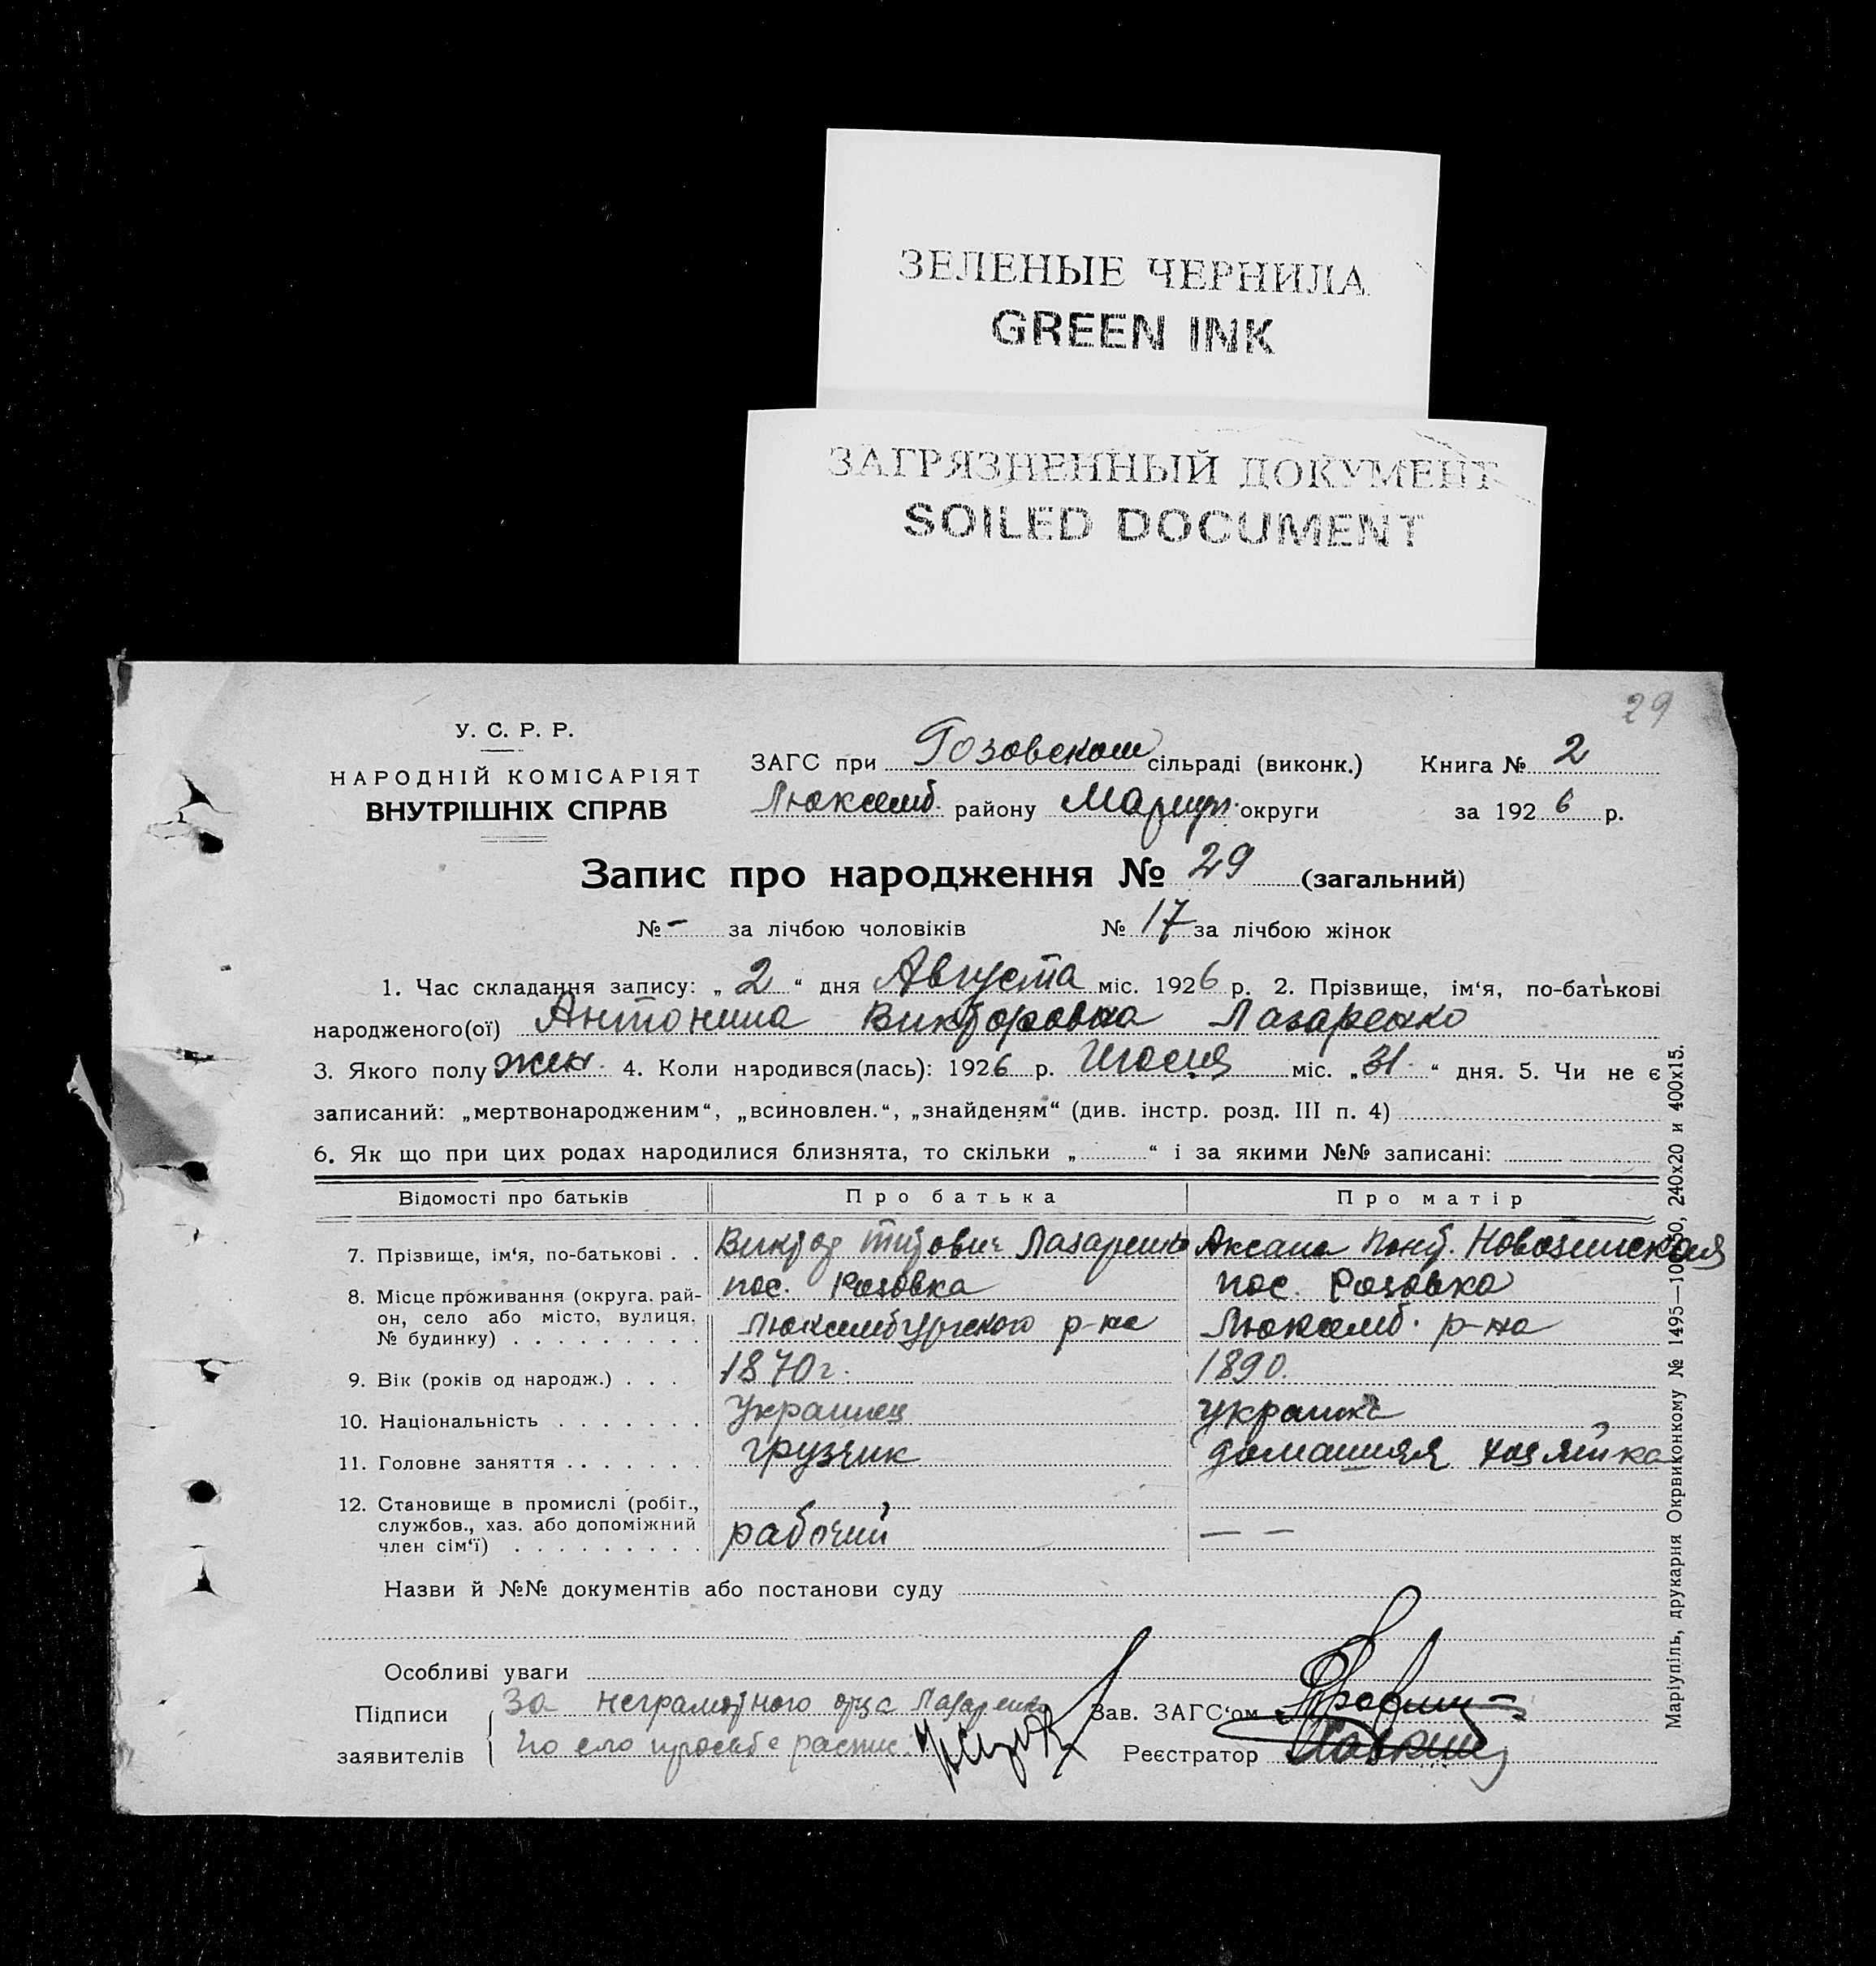 ЗЕЛЕНЫЕ ЧЕРНИЛА
GREEN INK
ЗАГРЯЗНЕННЫЙ ДОКУМЕНТ
SOILED DOCUMENT
29
У. С. Р. Р.
НАРОДНІЙ КОМІСАРІЯТ
ВНУТРІШНІХ СПРАВ
ЗАГС при Розовском сільраді (виконк.) Книга № 2
Люксемб. району Мариуп. округи за 1926 р.
Запис про народження № 29 (загальний)
№ - за лічбою чоловіків № 17 за лічбою жінок
1. Час складання запису: „ 2 “ дня Августа міс. 1926 р. 2. Прізвище, ім‘я, по-батькові
народженого(ої) Антонина Викторовна Лазаренко
3. Якого полу жен. 4. Коли народився(лась): 1926 р. Июля міс. „ 31 “ дня. 5. Чи не є
записаний: „мертвонародженим“, „всиновлен.“, „знайденям“ (див. інстр. розд. III п. 4)
6. Як що при цих родах народилися близнята, то скільки „ “ і за якими №№ записані:
Відомості про батьків Про батька Про матір
7. Прізвище, ім‘я, по-батькові . . Виктор Титович Лазаренко Аксана
8. Місце проживання (округа, рай- пос. Розовка пос. Розовка
он, село або місто, вулиця,
№ будинку) Люксембургского р-на Люксемб. р-на
9. Вік (років од народж.) . . . 1870 г. 1890.
10. Національність Украинец украинка
11. Головне заняття грузчик домашняя хозяйка
12. Становище в промислі (робіт.,
службов., хаз. або допоміжний рабочий — —
член сім‘ї)
Назви й №№ документів або постанови суду
Особливі уваги
Підписи За неграмотного отца Лазаренко Зав. ЗАГС‘ом
заявителів по его просьбе распис. Реєстратор
Маріупіль, друкарня Окрвиконкому № 1495—100x50, 240x20 и 400x15.